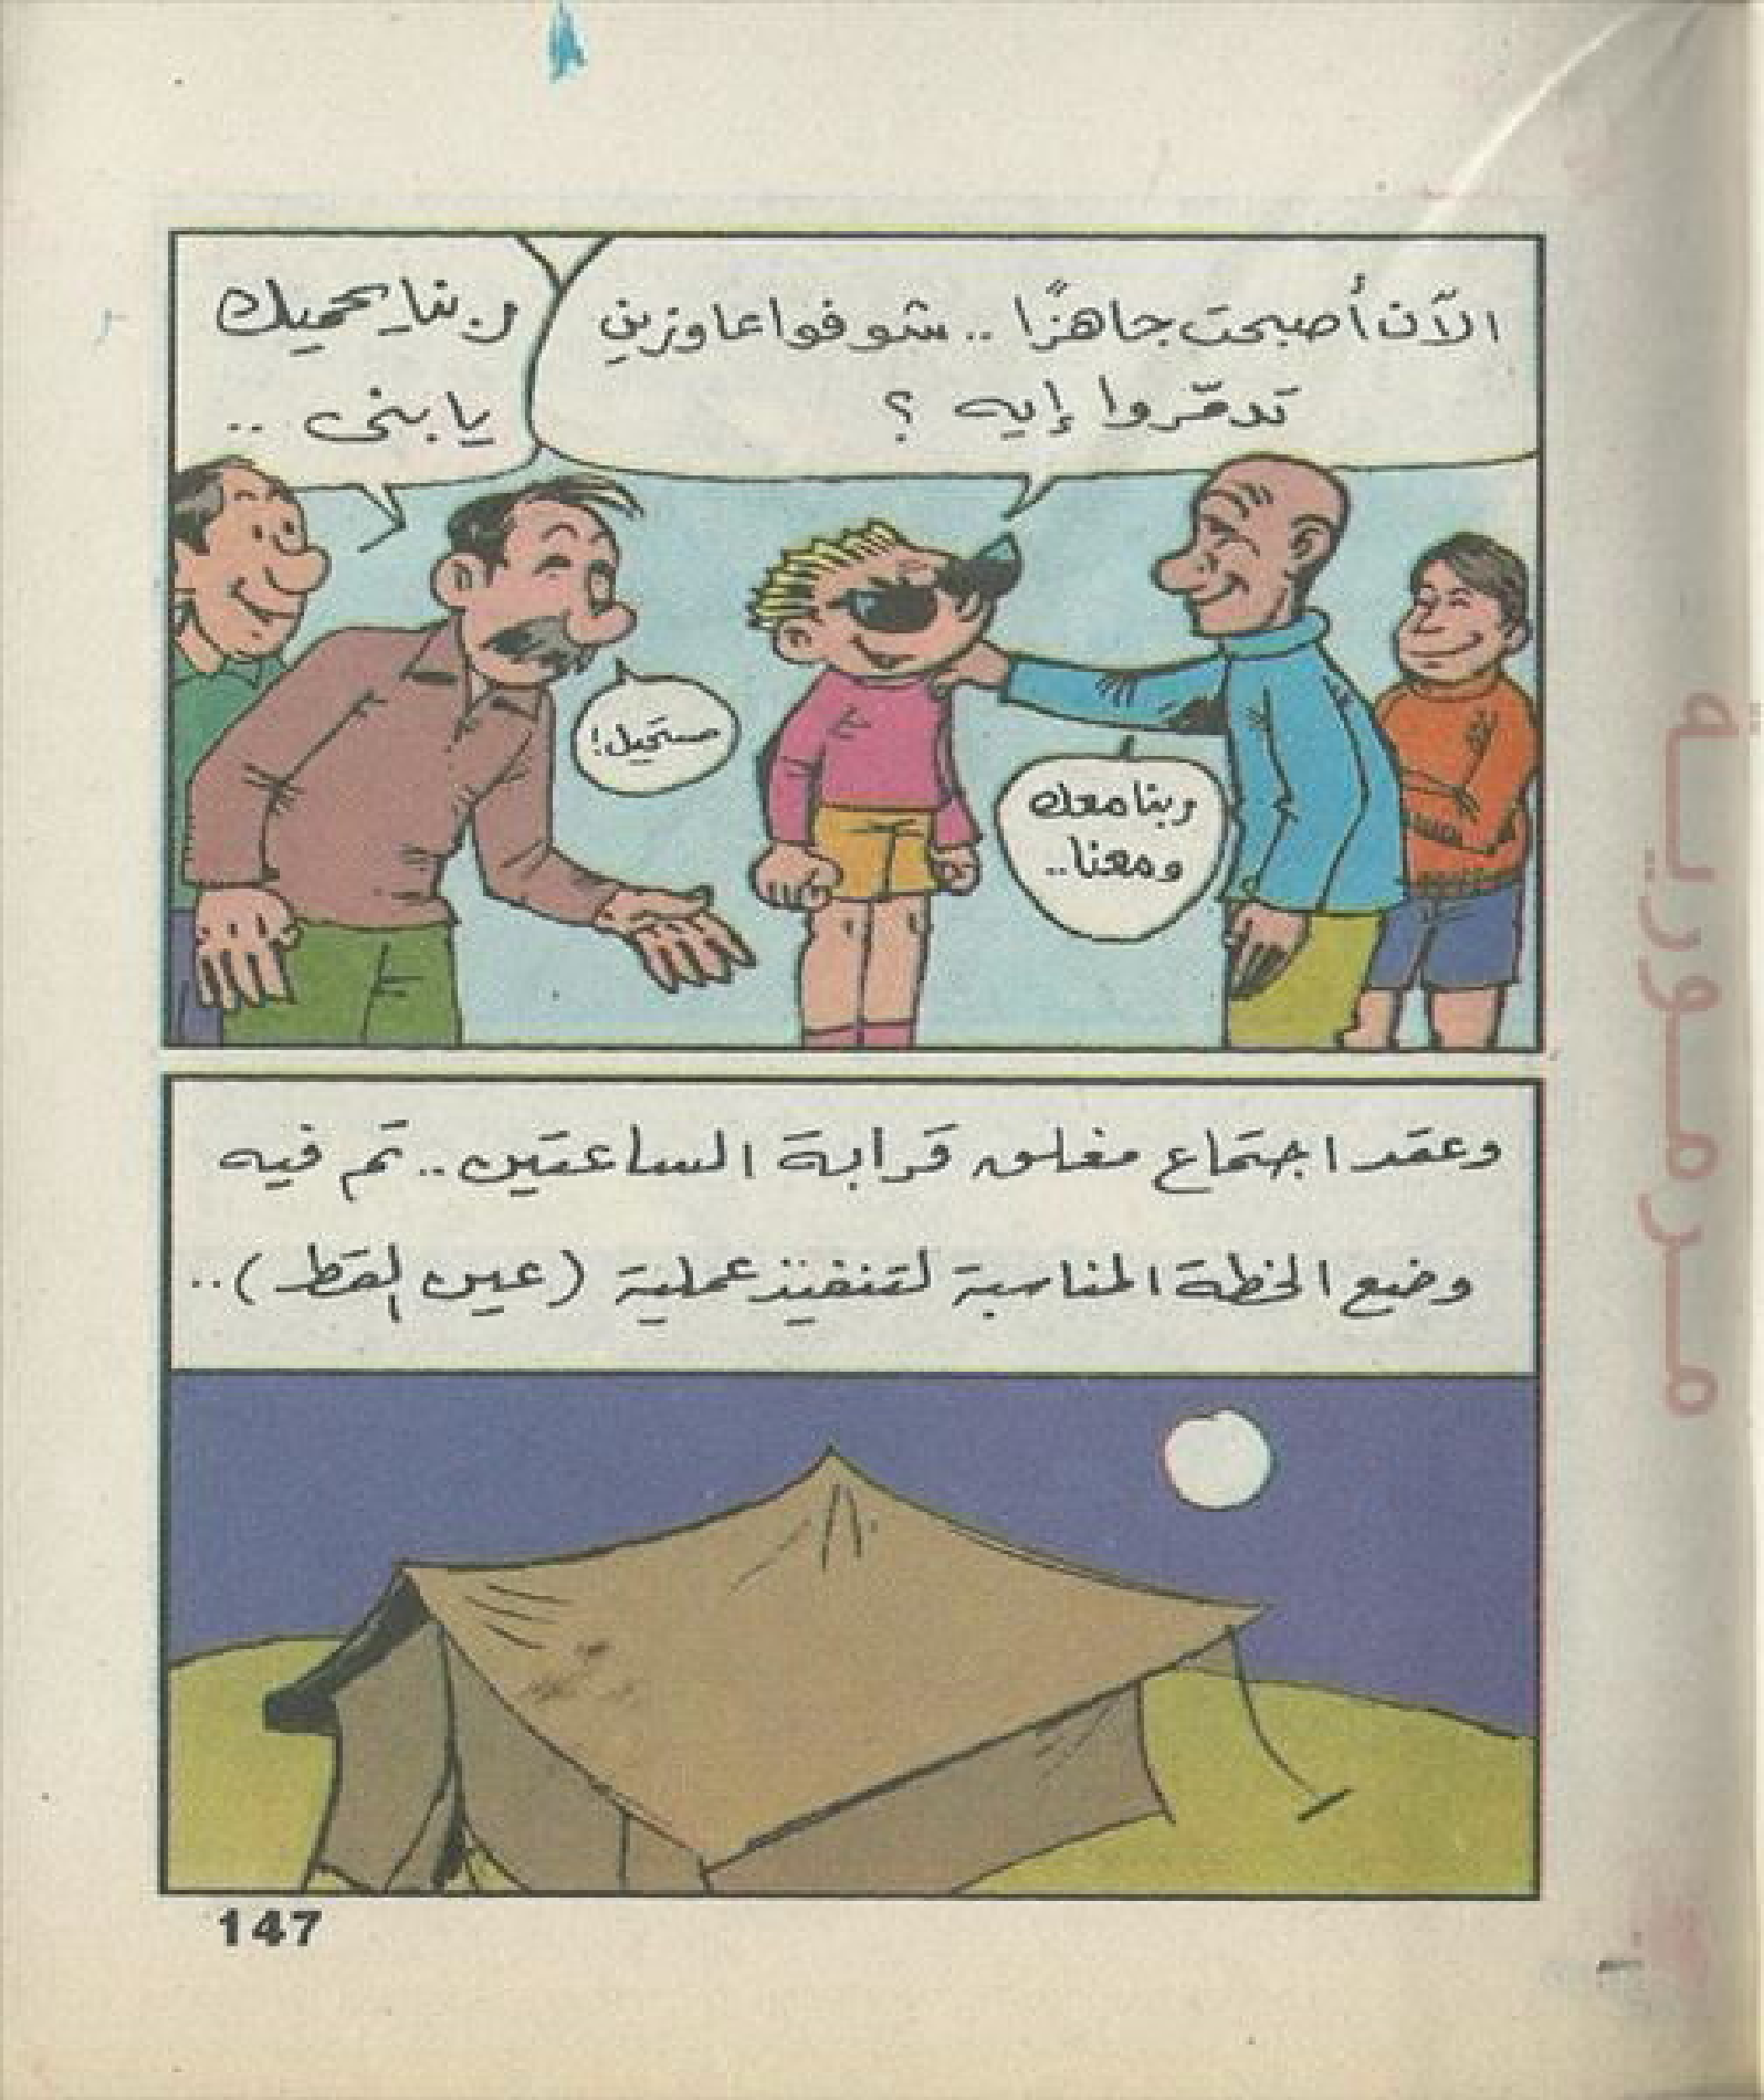 الآن أصبحت جاهزًا .. شوفوا عاوزين
تدمّروا إيه ؟
ربنا يحميك
يا بنى ..
مستحيل!
ربنا معك
ومعنا..
وعقد اجتماع مغلق قرابة الساعتين.. تم فيه
وضع الخطة المناسبة لتنفيذ عملية (عين القط)..
147
مرمورية